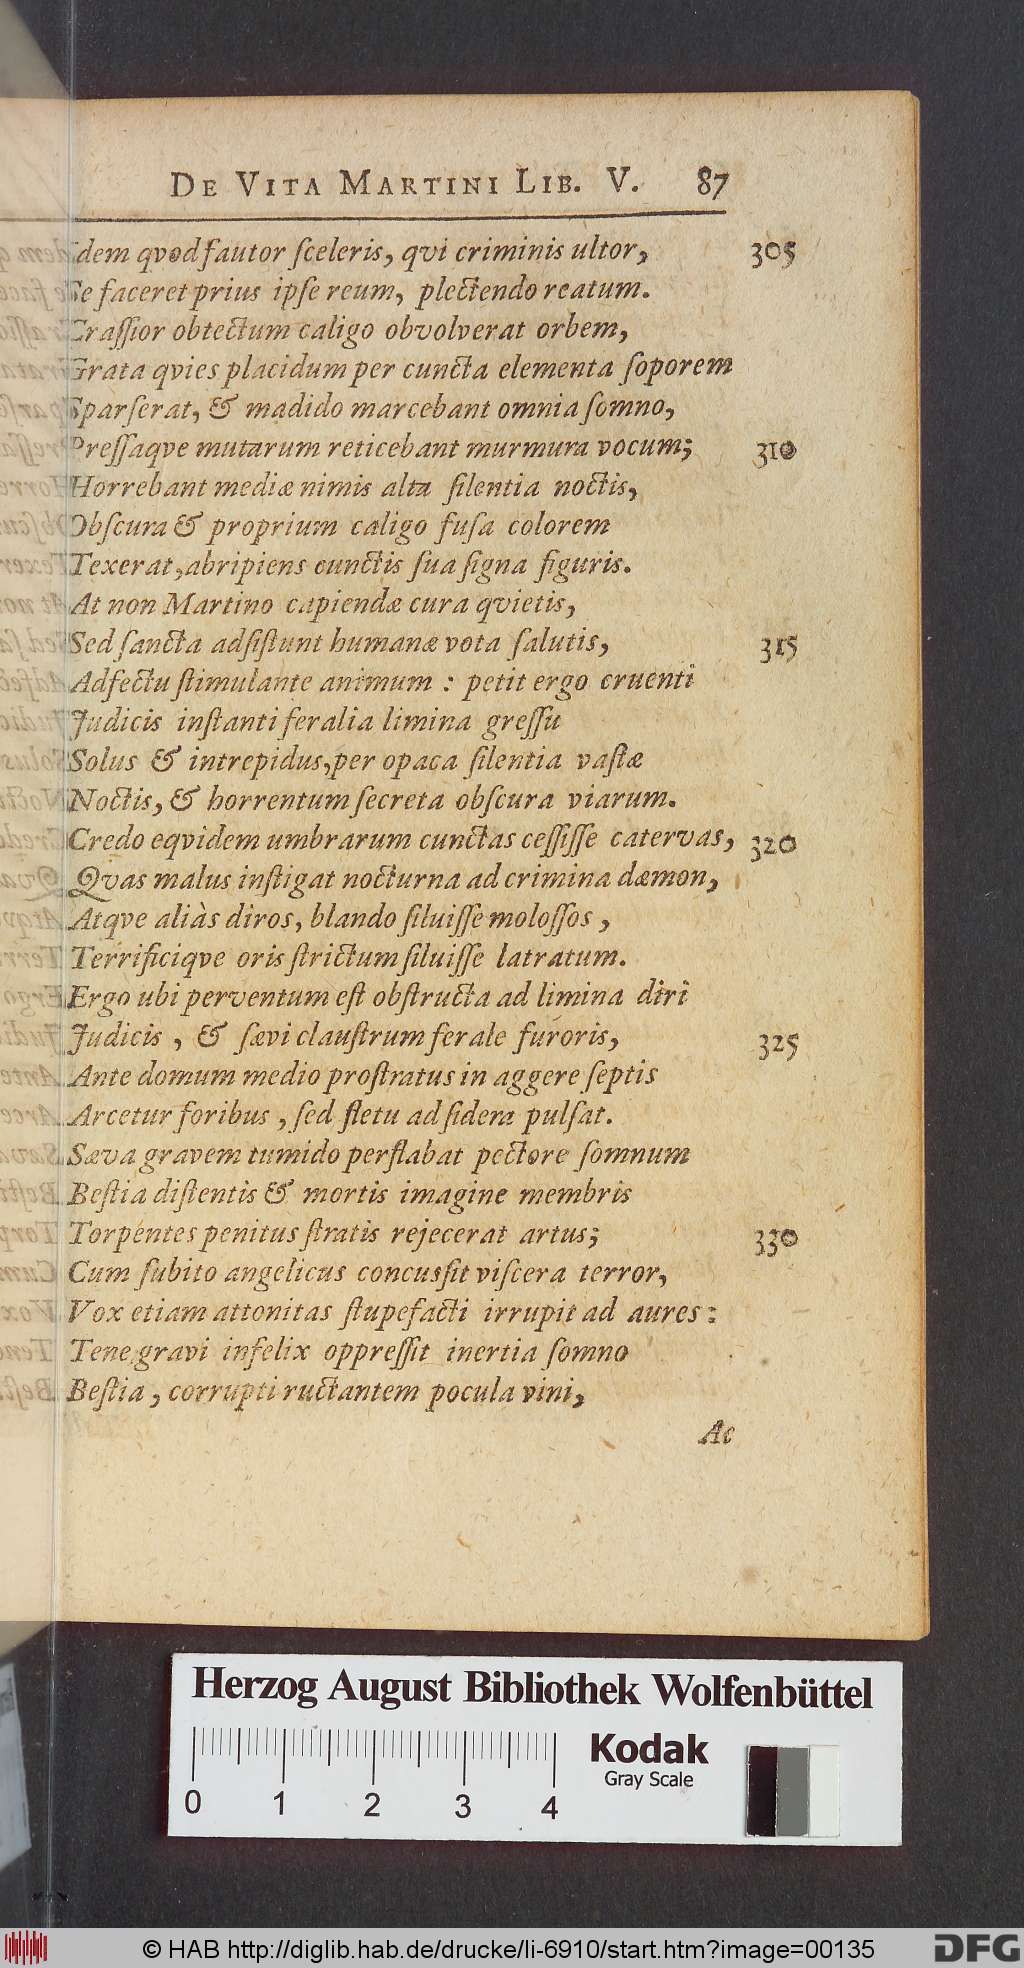 DE VITA MARTINI LIB. V. 87
Idem qvod fautor ſceleris, qvi criminis ultor, 305
Se faceret prius ipſe reum, plectendo reatum.
Craſſior obtectum caligo obvolverat orbem,
Grata qvies placidum per cuncta elementa ſoporem
Sparſerat, & madido marcebant omnia ſomno,
Preſſaqve mutarum reticebant murmura vocum; 310
Horrebant mediæ nimis alta ſilentia noctis,
Obſcura & proprium caligo fuſa colorem
Texerat, abripiens cunctis ſua ſigna figuris.
At non Martino capiendæ cura qvietis,
Sed ſancta adſiſtunt humanæ vota ſalutis, 315
Adfectu ſtimulante animum : petit ergo cruenti
Judicis inſtanti feralia limina greſſu
Solus & intrepidus, per opaca ſilentia vaſtæ
Noctis, & horrentum ſecreta obſcura viarum.
Credo eqvidem umbrarum cunctas ceſſiſſe catervas, 320
Qvas malus inſtigat nocturna ad crimina dæmon,
Atqve aliàs diros, blando ſiluiſſe moloſſos,
Terrificiqve oris ſtrictum ſiluiſſe latratum.
Ergo ubi perventum eſt obſtructa ad limina diri
Judicis, & ſævi clauſtrum ferale furoris, 325
Ante domum medio proſtratus in aggere ſeptis
Arcetur foribus, ſed fletu ad ſidera pulſat.
Sæva gravem tumido perflabat pectore ſomnum
Beſtia diſtentis & mortis imagine membris
Torpentes penitus ſtratis rejecerat artus; 330
Cum ſubito angelicus concusſit viſcera terror,
Vox etiam attonitas ſtupefacti irrupit ad aures:
Tene gravi infelix oppreſſit inertia ſomno
Beſtia, corrupti ructantem pocula vini,
Ac
Herzog August Bibliothek Wolfenbüttel
Kodak
Gray Scale
0 1 2 3 4
© HAB http://diglib.hab.de/drucke/li-6910/start.htm?image=00135
DFG